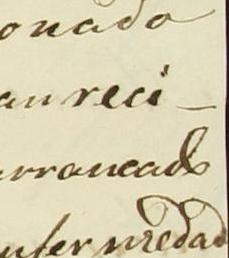 onado
an reci-
arrancado
enfermedad